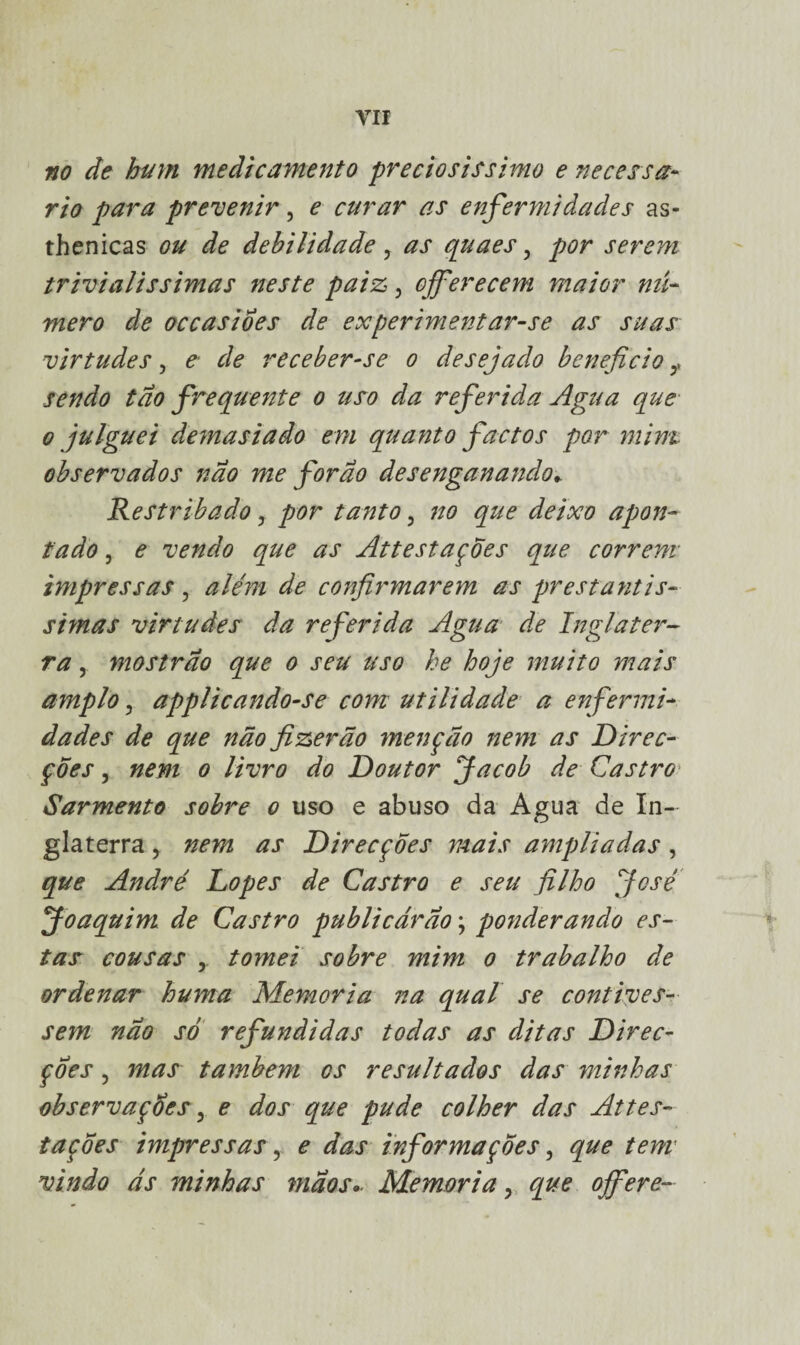 VII
no de hum medicamento preciosissimo e necessa-
rio para prevenir, e curar as enfermidades as-
thenicas ou de debilidade, as quaes, por serem
trivialissimas neste paiz, offerecem maior nú-
mero de occasiões de experimentar-se as suas
virtudes, e de receber-se o desejado beneficio,
sendo tão frequente o uso da referida Agua que
o julguei demasiado em quanto factos por mim
observados não me forão desenganando.
Restribado, por tanto, no que deixo apon-
tado, e vendo que as Attestações que correm
impressas, além de confirmarem as prestantis-
simas virtudes da referida Agua de Inglater-
ra, mostrão que o seu uso he hoje muito mais
amplo, applicando-se com utilidade a enfermi-
dades de que não fizerão menção nem as Direc-
ções, nem o livro do Doutor Jacob de Castro
Sarmento sobre o uso e abuso da Agua de In-
glaterra, nem as Direcções mais ampliadas,
que André Lopes de Castro e seu filho José
Joaquim de Castro publicárão; ponderando es-
tas cousas, tomei sobre mim o trabalho de
ordenar huma Memoria na qual se contives-
sem não só refundidas todas as ditas Direc-
ções, mas tambem os resultados das minhas
observações, e dos que pude colher das Attes-
tações impressas, e das informações, que tem
vindo ás minhas mãos. Memoria, que offere-